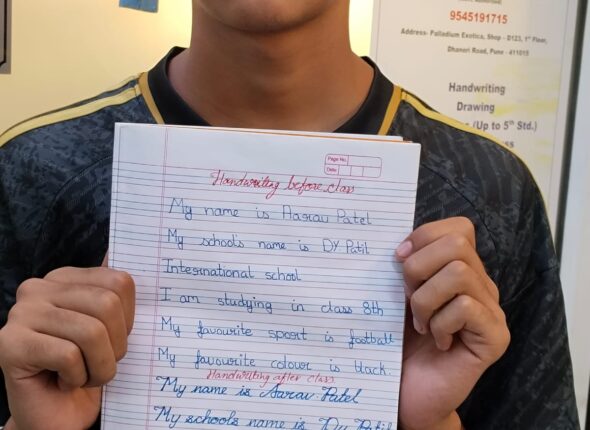 9545191715
Address- Palladium Exotica, Shop - D123, 1st Floor,
Dhanori Road, Pune - 411015
Handwriting
Drawing
(Up to 5th Std.)
Page No.
Date
Handwriting before class
My name is Aarav Patel
My school's name is DY Patil
International school
I am studying in class 8th
My favourite sport is football
My favourite colour is black.
Handwriting after class
My name is Aarav Patel
My schools name is Dy Patil